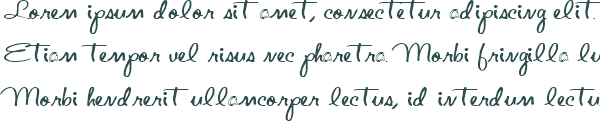 Lorem ipsum dolor sit amet, consectetur adipiscing elit.
Etiam tempor vel risus nec pharetra. Morbi fringilla lu
Morbi hendrerit ullamcorper lectus, id interdum lectu